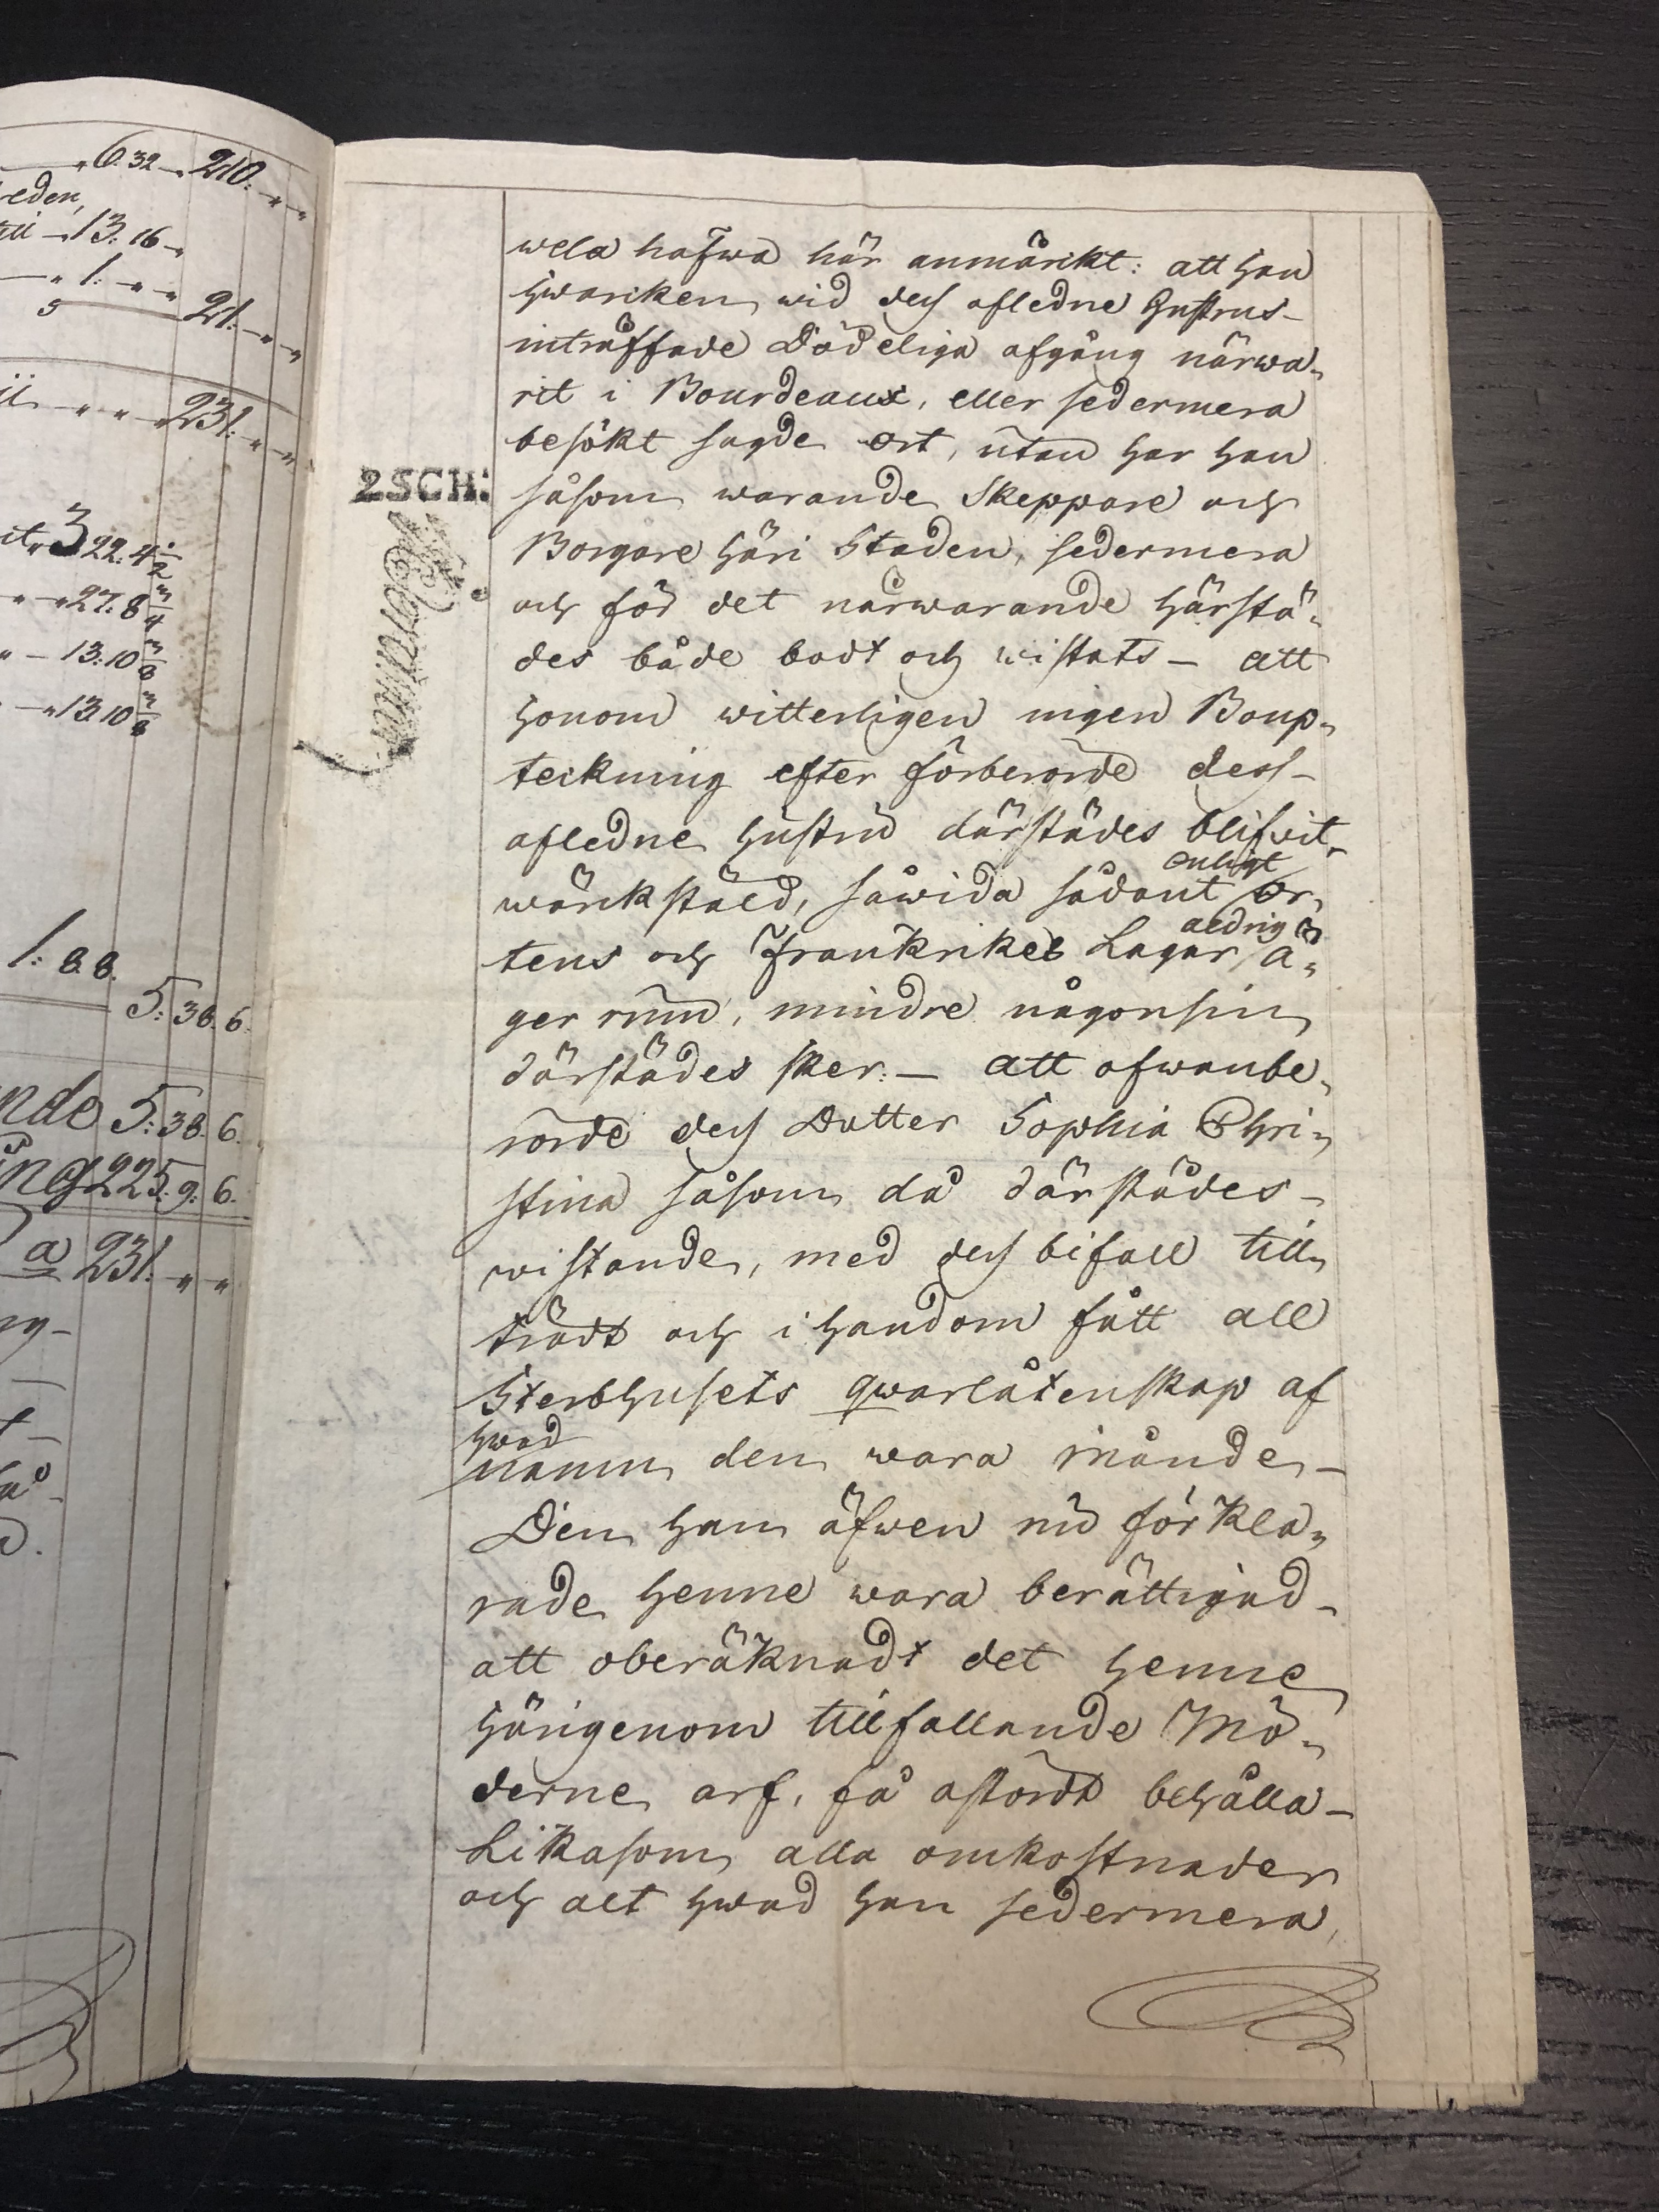 6. 32 210.
eden,
till 13: 16
1:
5 21:
231:
322. 4 1/2
27: 8 3/4
13: 10 3/8
13 10 3/8
1: 8. 8.
5: 38. 6.
nde 5: 38. 6.
ing 225. 9. 6.
a 231.
2 SCH:
wela hafwa här anmärkt: att han
hwarken wid dess aflednе Hustrus
inträffade Dödeliga afgång närwa-
rit i Bourdeaux, eller sedermera
besökt sagde ort, utan har han
såsom warande Skeppare och
Borgare häri Staden, sedermera
och för det närwarande härstä-
des både bodt och wistats — att
honom witterligen ingen Boup-
teckning efter förberörde dess
afledne hustru därstädes blifwit
wärkstäld, såwida sådant enligt or-
tens och Frankrikes Lagar aldrig ä-
ger rum, mindre någonsin
därstädes sker: — att ofwanbe-
rörde dess Dotter Sophia Chri-
stina såsom då därstädes
wistande, med dess bifall till-
trädt och i handom fått all
Sterbhusets qwarlåtenskap af
hwad namn den wara månde —
Den han äfwen nu förkla-
rade henne wara berättigad
att oberäknadt det henne
härigenom tillfallande Mö-
derne arf, få ostördt behålla —
Likasom alla omkostnader
och alt hwad han sedermera